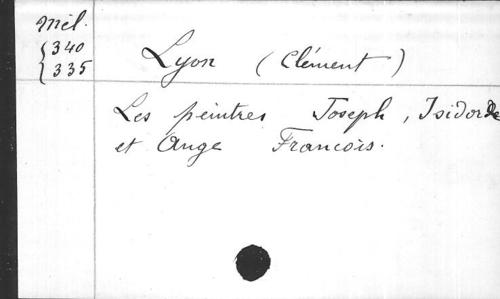 Mél.
340
335
Lyon (Clément)
Les peintres Joseph, Isidore
et Ange Francois.